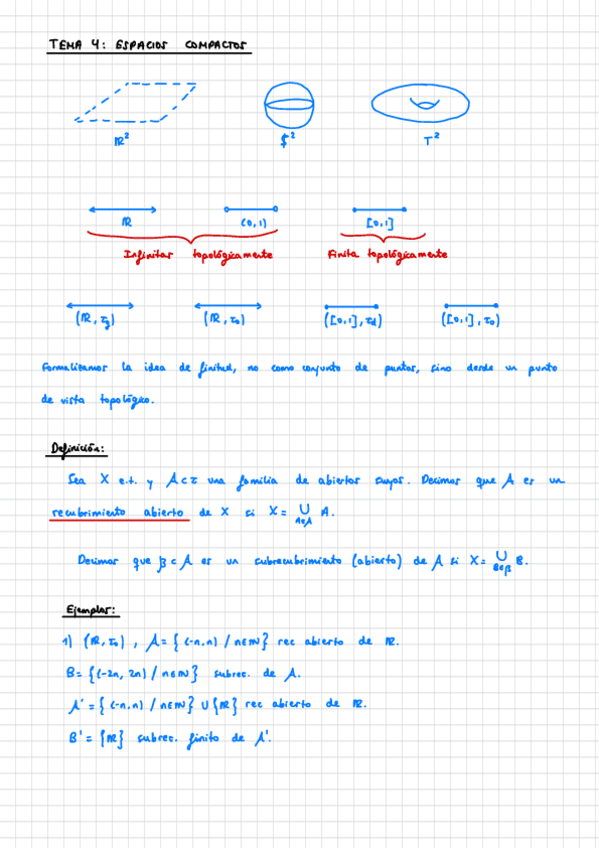 TEMA 4: ESPACIOS COMPACTOS
ℝ² 𝕊² T²
ℝ (0,1) [0,1]
Infinitas topológicamente Finita topológicamente
(ℝ, τ_g) (ℝ, τ₀) ([0,1], τ_d) ([0,1], τ₀)
Formalizamos la idea de finitud, no como conjunto de puntos, sino desde un punto
de vista topológico.
Definición:
Sea X e.t. y A ⊂ τ una familia de abiertos suyos. Decimos que A es un
recubrimiento abierto de X si X = ∪_{A∈A} A.
Decimos que β ⊂ A es un subrecubrimiento (abierto) de A si X = ∪_{B∈β} B.
Ejemplos:
1) (ℝ, τ₀), A = { (-n,n) / n∈ℕ } rec abierto de ℝ.
B = {(-2n, 2n) / n∈ℕ} subrec. de A.
A' = { (-n,n) / n∈ℕ } ∪ {ℝ} rec abierto de ℝ.
B' = {ℝ} subrec. finito de A'.